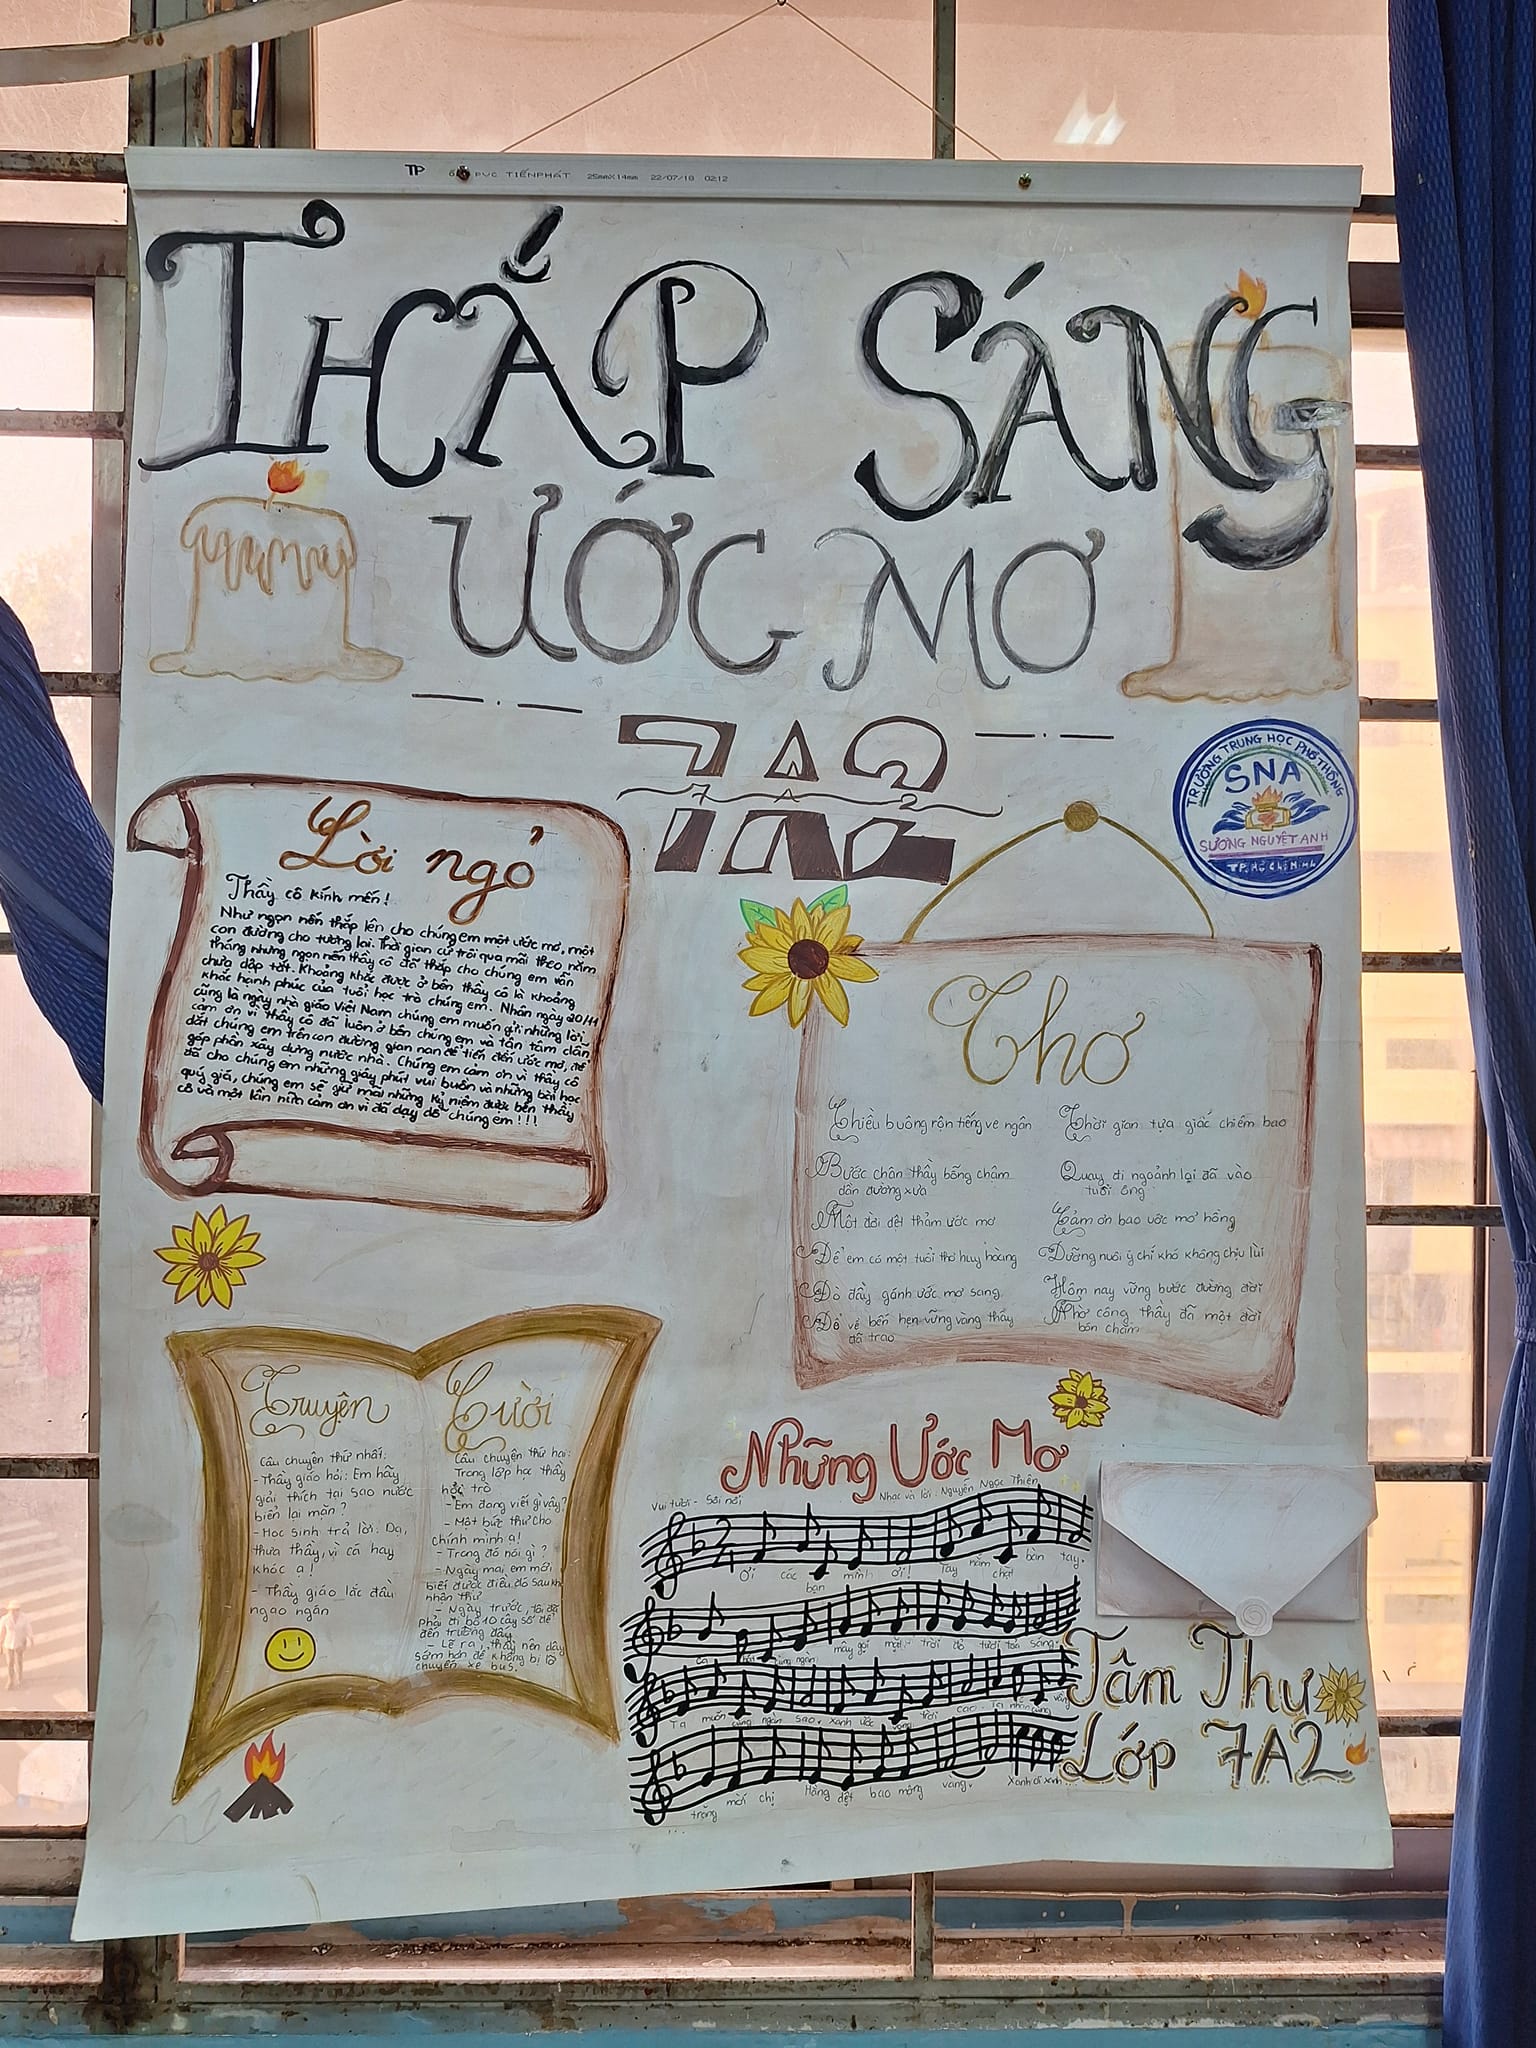 TP ỐNG PVC TIẾNPHÁT 25mmX14mm 22/07/18 02:12
THẮP SÁNG
ƯỚC MƠ
7A2
7 A 2
TRƯỜNG TRUNG HỌC PHỔ THÔNG
SNA
SƯƠNG NGUYỆT ANH
TP. Hồ Chí Minh
Lời ngỏ
Thầy cô kính mến!
Như ngọn nến thắp lên cho chúng em một ước mơ, một
con đường cho tương lai. Thời gian cứ trôi qua mãi theo năm
tháng nhưng ngọn nến thầy cô đã thắp cho chúng em vẫn
chưa dập tắt. Khoảng khắc được ở bên thầy cô là khoảng
khắc hạnh phúc của tuổi học trò chúng em. Nhân ngày 20/11
cũng là ngày nhà giáo Việt Nam chúng em muốn gửi những lời
cảm ơn vì thầy cô đã luôn ở bên chúng em và tận tâm dẫn
dắt chúng em trên con đường gian nan để tiến đến ước mơ, để
góp phần xây dựng nước nhà. Chúng em cảm ơn vì thầy cô
đã cho chúng em những giây phút vui buồn và những bài học
quý giá, chúng em sẽ giữ mãi những kỷ niệm được bên thầy
cô và một lần nữa cảm ơn vì đã dạy dỗ chúng em!!!
Thơ
Chiều buông rộn tiếng ve ngân
Bước chân thầy bỗng chậm
dần đường xưa
Một đời dệt thảm ước mơ
Để em có một tuổi thơ huy hoàng
Đò đầy gánh ước mơ sang
Đỗ về bến hẹn vững vàng thầy
đã trao
Thời gian tựa giấc chiêm bao
Quay đi ngoảnh lại đã vào
tuổi ông
Cảm ơn bao ước mơ hồng
Dưỡng nuôi ý chí khó không chịu lùi
Hôm nay vững bước đường đời
Nhờ công thầy đã một đời
bón chăm
Truyện
Câu chuyện thứ nhất:
- Thầy giáo hỏi: Em hãy
giải thích tại sao nước
biển lại mặn?
- Học sinh trả lời: Dạ,
thưa thầy, vì cá hay
khóc ạ!
- Thầy giáo lắc đầu
ngao ngán
Cười
Câu chuyện thứ hai:
Trong lớp học thầy
hỏi trò
- Em đang viết gì vậy?
- Một bức thư cho
chính mình ạ!
- Trong đó nói gì?
- Ngày mai em mới
biết được điều đó sau khi
nhận thư
- Ngày trước, tôi đã
phải đi bộ 10 cây số để
đến trường đấy
- Lẽ ra, thầy nên dậy
sớm hơn để không bị lỡ
chuyến xe bus.
Những Ước Mơ
Vui tươi - Sôi nổi
Nhạc và lời: Nguyễn Ngọc Thiện
2
4
Ơi các bạn mình ơi! Tay nắm chặt bàn tay.
Ca hát cùng ngàn mây gọi mặt trời đỏ tươi tỏa sáng.
Ta muốn cùng ngàn sao. Xanh ước vọng trời cao. Ta nhắn cùng vầng
trăng mời chị Hằng dệt bao mộng vàng. Xanh ơi xanh
...
Tâm Thư
Lớp 7A2